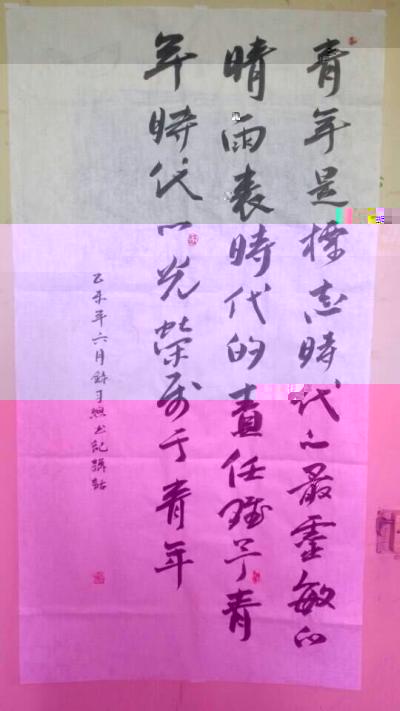 青年是標志時代之最靈敏的
晴雨表時代的責任賦予青
年時代的光榮屬于青年
乙未年六月